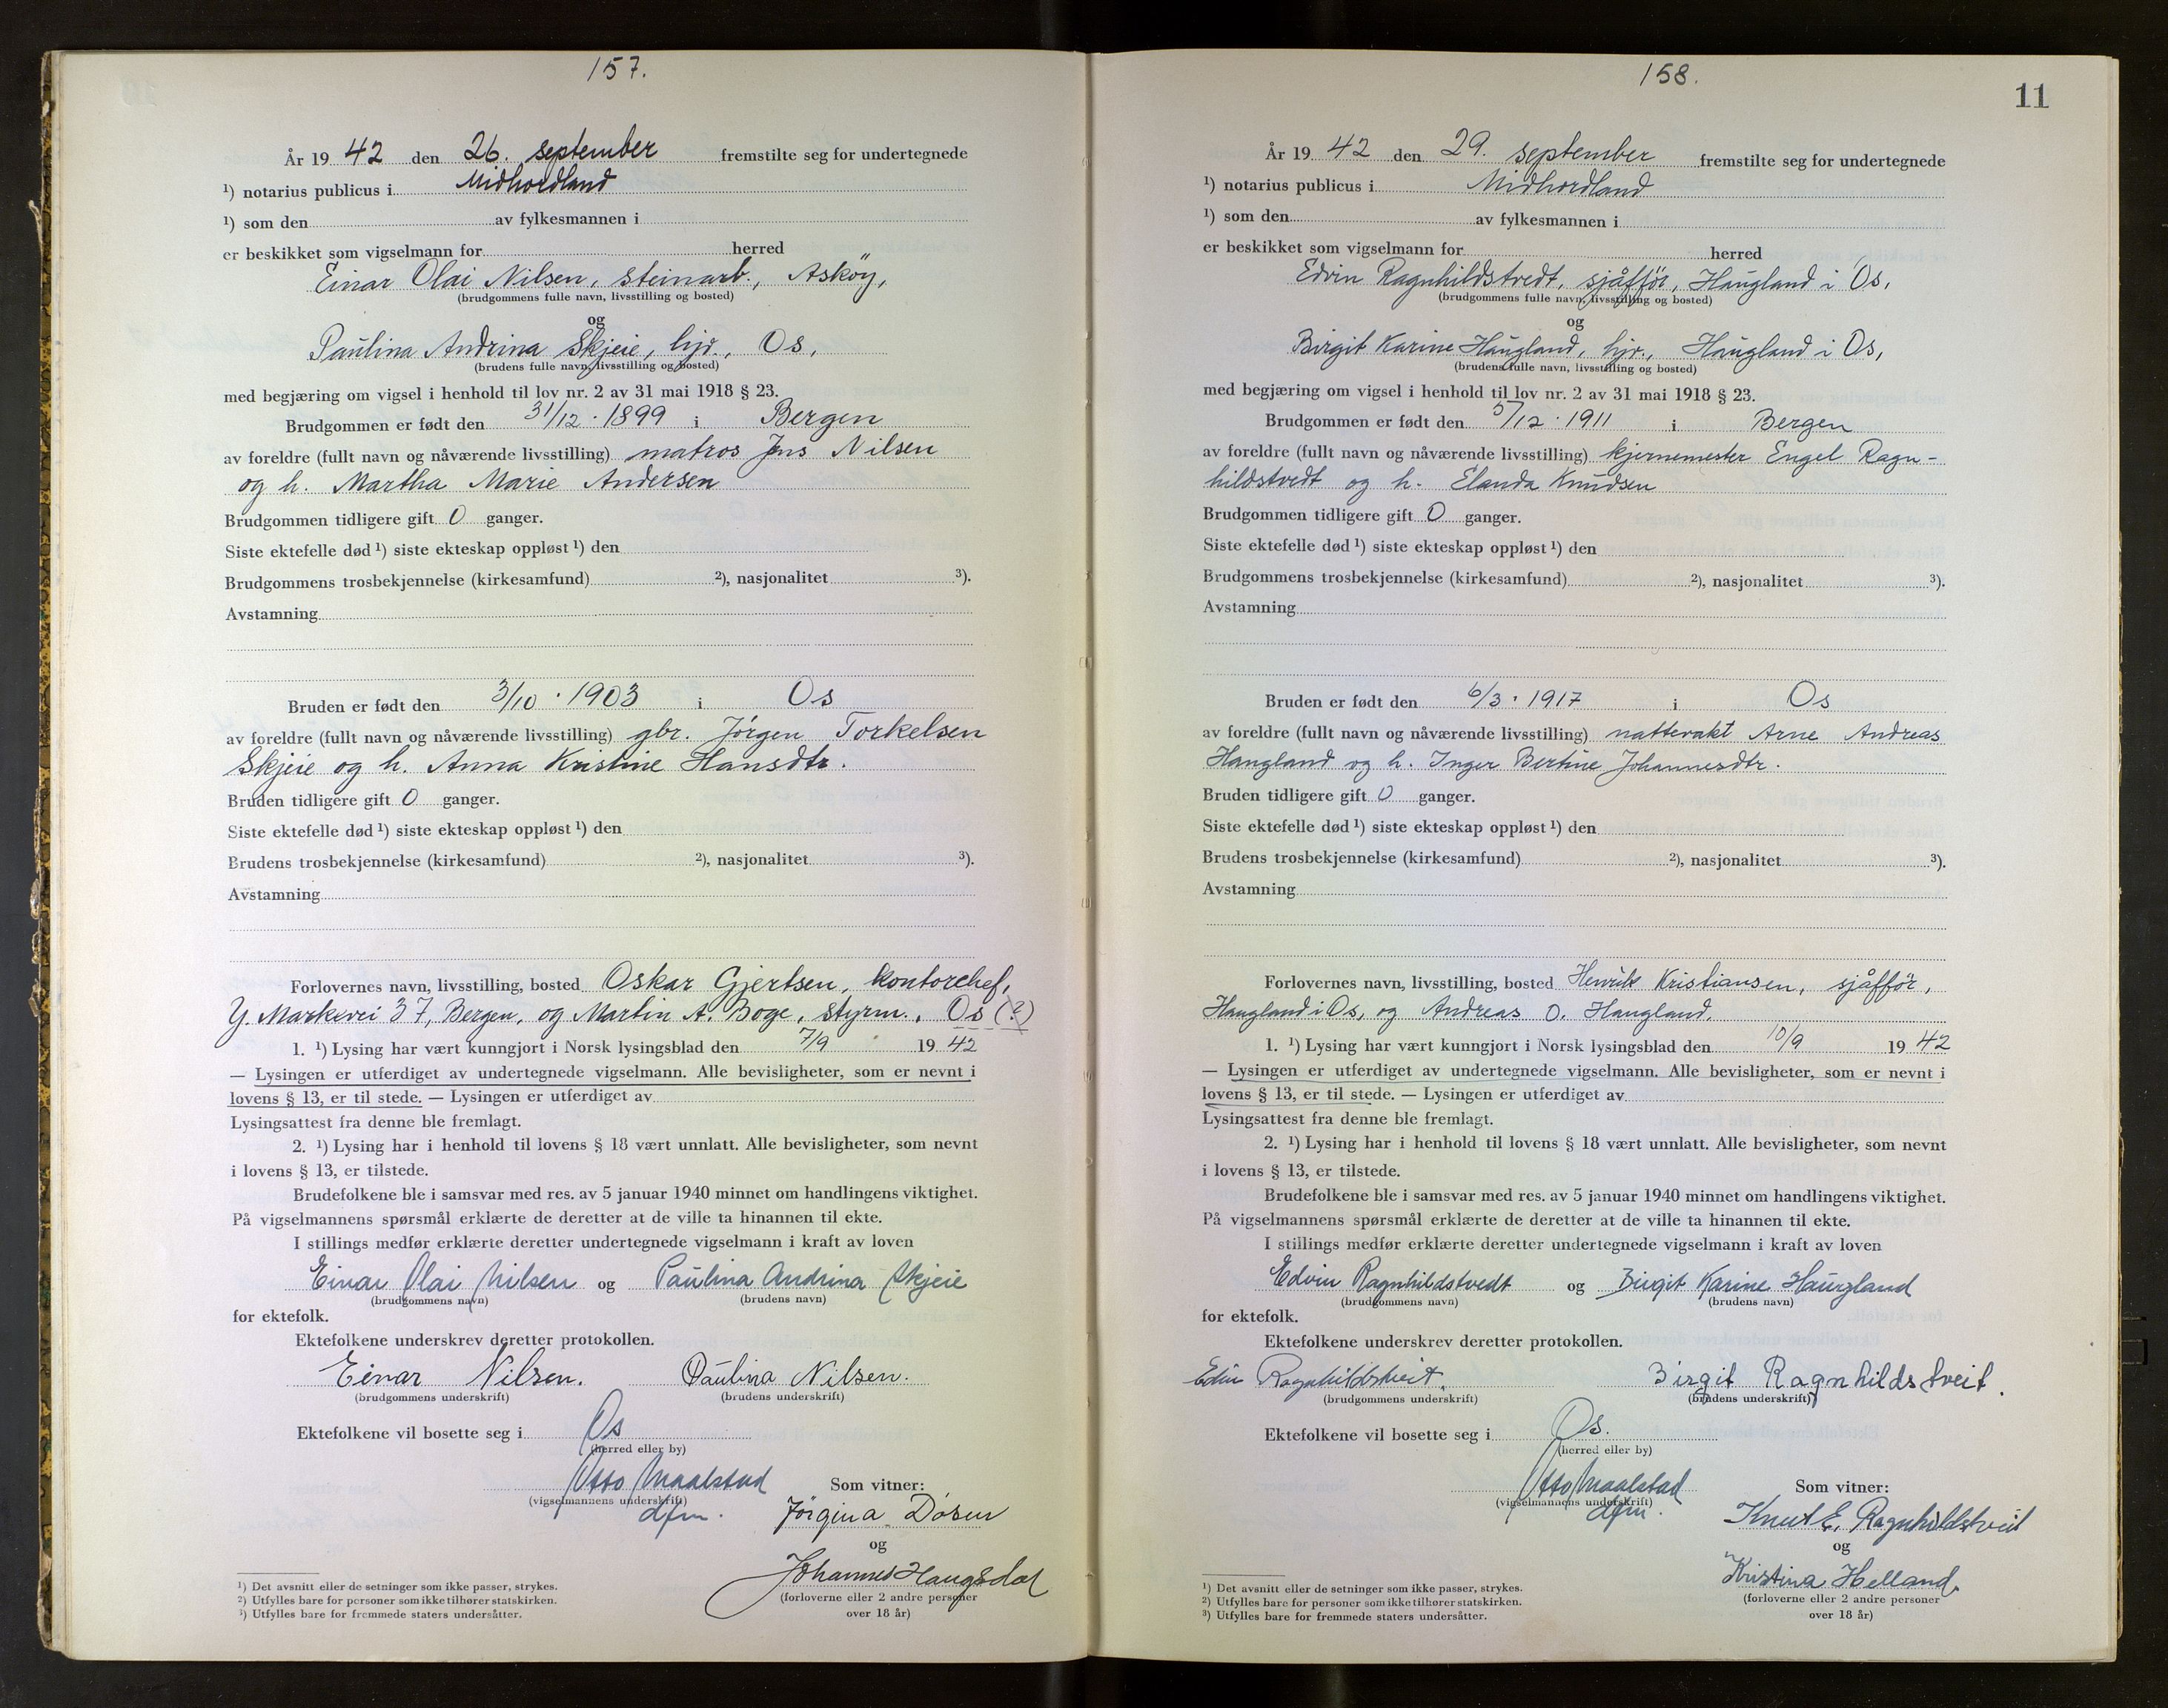 157.
År 19 42 den 26. september fremstilte seg for undertegnede
¹) notarius publicus i Midhordland
¹) som den av fylkesmannen i
er beskikket som vigselmann for herred
Einar Olai Nilsen, steinarb., Asköy,
(brudgommens fulle navn, livsstilling og bosted)
og
Paulina Andrina Skjeie, hjv., Os,
(brudens fulle navn, livsstilling og bosted)
med begjæring om vigsel i henhold til lov nr. 2 av 31 mai 1918 § 23.
Brudgommen er født den 31/12 · 1899 i Bergen
av foreldre (fullt navn og nåværende livsstilling) matros Jens Nilsen
og h. Martha Marie Andersen
Brudgommen tidligere gift 0 ganger.
Siste ektefelle død ¹) siste ekteskap oppløst ¹) den
Brudgommens trosbekjennelse (kirkesamfund) ²), nasjonalitet ³).
Avstamning
Bruden er født den 3/10 · 1903 i Os
av foreldre (fullt navn og nåværende livsstilling) gbr. Jörgen Torkelsen
Skjeie og h. Anna Kristine Hansdtr.
Bruden tidligere gift 0 ganger.
Siste ektefelle død ¹) siste ekteskap oppløst ¹) den
Brudens trosbekjennelse (kirkesamfund) ²), nasjonalitet ³).
Avstamning
Forlovernes navn, livsstilling, bosted Oskar Gjertsen, kontorchef,
Y. Markevei 37, Bergen, og Martin A. Boge, styrm., Os (?)
1. ¹) Lysing har vært kunngjort i Norsk lysingsblad den 7/9 19 42
— Lysingen er utferdiget av undertegnede vigselmann. Alle bevisligheter, som er nevnt i
lovens § 13, er til stede. — Lysingen er utferdiget av
Lysingsattest fra denne ble fremlagt.
2. ¹) Lysing har i henhold til lovens § 18 vært unnlatt. Alle bevisligheter, som nevnt
i lovens § 13, er tilstede.
Brudefolkene ble i samsvar med res. av 5 januar 1940 minnet om handlingens viktighet.
På vigselmannens spørsmål erklærte de deretter at de ville ta hinannen til ekte.
I stillings medfør erklærte deretter undertegnede vigselmann i kraft av loven
Einar Olai Nilsen og Paulina Andrina Skjeie
(brudgommens navn) (brudens navn)
for ektefolk.
Ektefolkene underskrev deretter protokollen.
Einar Nilsen. Paulina Nilsen.
(brudgommens underskrift) (brudens underskrift)
Ektefolkene vil bosette seg i Os
(herred eller by)
Otto Maalstad
(vigselmannens underskrift)
dfm.
Som vitner:
Jörgina Dösen
og
Johannes Haugsdal
(forloverne eller 2 andre personer
over 18 år)
¹) Det avsnitt eller de setninger som ikke passer, strykes.
²) Utfylles bare for personer som ikke tilhører statskirken.
³) Utfylles bare for fremmede staters undersåtter.
158.
11
År 19 42 den 29. september fremstilte seg for undertegnede
¹) notarius publicus i Midhordland
¹) som den av fylkesmannen i
er beskikket som vigselmann for herred
Edvin Ragnhildstvedt, sjåfför, Haugland i Os,
(brudgommens fulle navn, livsstilling og bosted)
og
Birgit Karine Haugland, hjv., Haugland i Os,
(brudens fulle navn, livsstilling og bosted)
med begjæring om vigsel i henhold til lov nr. 2 av 31 mai 1918 § 23.
Brudgommen er født den 5/12 · 1911 i Bergen
av foreldre (fullt navn og nåværende livsstilling) kjernemester Engel Ragn-
hildstvedt og h. Elanda Knudsen
Brudgommen tidligere gift 0 ganger.
Siste ektefelle død ¹) siste ekteskap oppløst ¹) den
Brudgommens trosbekjennelse (kirkesamfund) ²), nasjonalitet ³).
Avstamning
Bruden er født den 6/3 · 1917 i Os
av foreldre (fullt navn og nåværende livsstilling) nattevakt Arne Andreas
Haugland og h. Inger Bertine Johannesdtr.
Bruden tidligere gift 0 ganger.
Siste ektefelle død ¹) siste ekteskap oppløst ¹) den
Brudens trosbekjennelse (kirkesamfund) ²), nasjonalitet ³).
Avstamning
Forlovernes navn, livsstilling, bosted Henrik Kristiansen, sjåfför,
Haugland i Os, og Andreas O. Haugland.
1. ¹) Lysing har vært kunngjort i Norsk lysingsblad den 10/9 19 42
— Lysingen er utferdiget av undertegnede vigselmann. Alle bevisligheter, som er nevnt i
lovens § 13, er til stede. — Lysingen er utferdiget av
Lysingsattest fra denne ble fremlagt.
2. ¹) Lysing har i henhold til lovens § 18 vært unnlatt. Alle bevisligheter, som nevnt
i lovens § 13, er tilstede.
Brudefolkene ble i samsvar med res. av 5 januar 1940 minnet om handlingens viktighet.
På vigselmannens spørsmål erklærte de deretter at de ville ta hinannen til ekte.
I stillings medfør erklærte deretter undertegnede vigselmann i kraft av loven
Edvin Ragnhildstvedt og Birgit Karine Haugland
(brudgommens navn) (brudens navn)
for ektefolk.
Ektefolkene underskrev deretter protokollen.
Edvin Ragnhildstveit. Birgit Ragnhildstveit.
(brudgommens underskrift) (brudens underskrift)
Ektefolkene vil bosette seg i Os.
(herred eller by)
Otto Maalstad
(vigselmannens underskrift)
dfm.
Som vitner:
Knut E. Ragnhildstveit
og
Kristina Helland.
(forloverne eller 2 andre personer
over 18 år)
¹) Det avsnitt eller de setninger som ikke passer, strykes.
²) Utfylles bare for personer som ikke tilhører statskirken.
³) Utfylles bare for fremmede staters undersåtter.